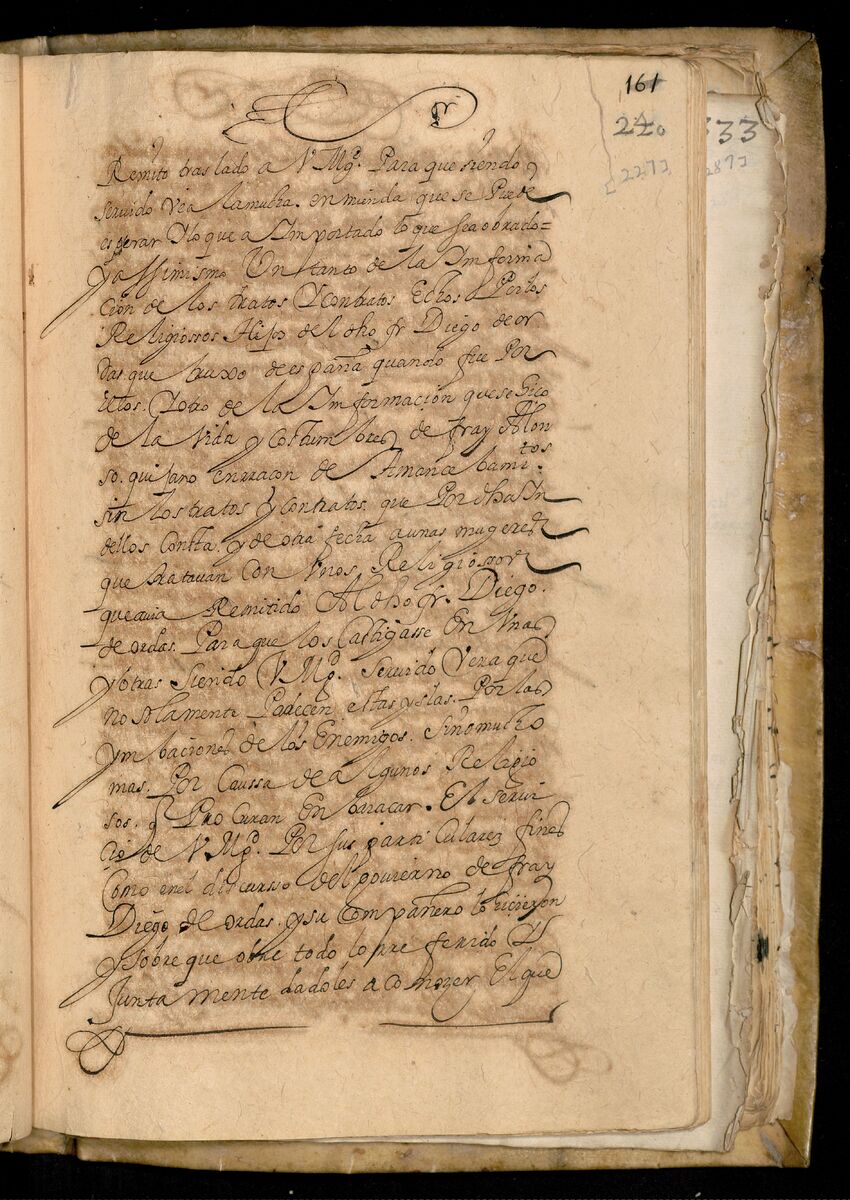 161
240
333
[227]
287]
Remito traslado a V. Mgd. Para que siendo
seruido vea la mucha enmienda que se Puede
esperar Y lo que a Importado lo que sea obrado=
Y assimismo Un tanto de la Informa
cion de los tratos Y contratos Echos Por los
Religiossos Hijos del dho fr Diego de or
das que truxo de españa quando fue Por
ellos. Y otro de la Informacion que se hico
de la Vida y Costumbres de fray Alon
so quijano en rracon de Amancebami.tos
sin los tratos y contratos que Por dha In
dellos Consta. y de otra fecha a unas mugeres
que trataban con Vnos Religiossos
que auia Remitido Al dho fr. Diego
de ordas. Para que los Castigasse En Vnas
y otras Siendo V. Mgd. Seruido Vera que
no solamente Padecen estas yslas. Por las
ymbaciones de los Enemigos. sino mucho
mas. Por Caussa de algunos Religio
sos. q Procuran Enbaracar. El serui
cio de V. Mgd. Por sus particulares fines
Como en el discurso del gouierno de fray
Diego de ordas. y su Compañero lo hicieron
Y sobre que obre todo lo rreferido Y
Junta mente dadoles a conozer El que